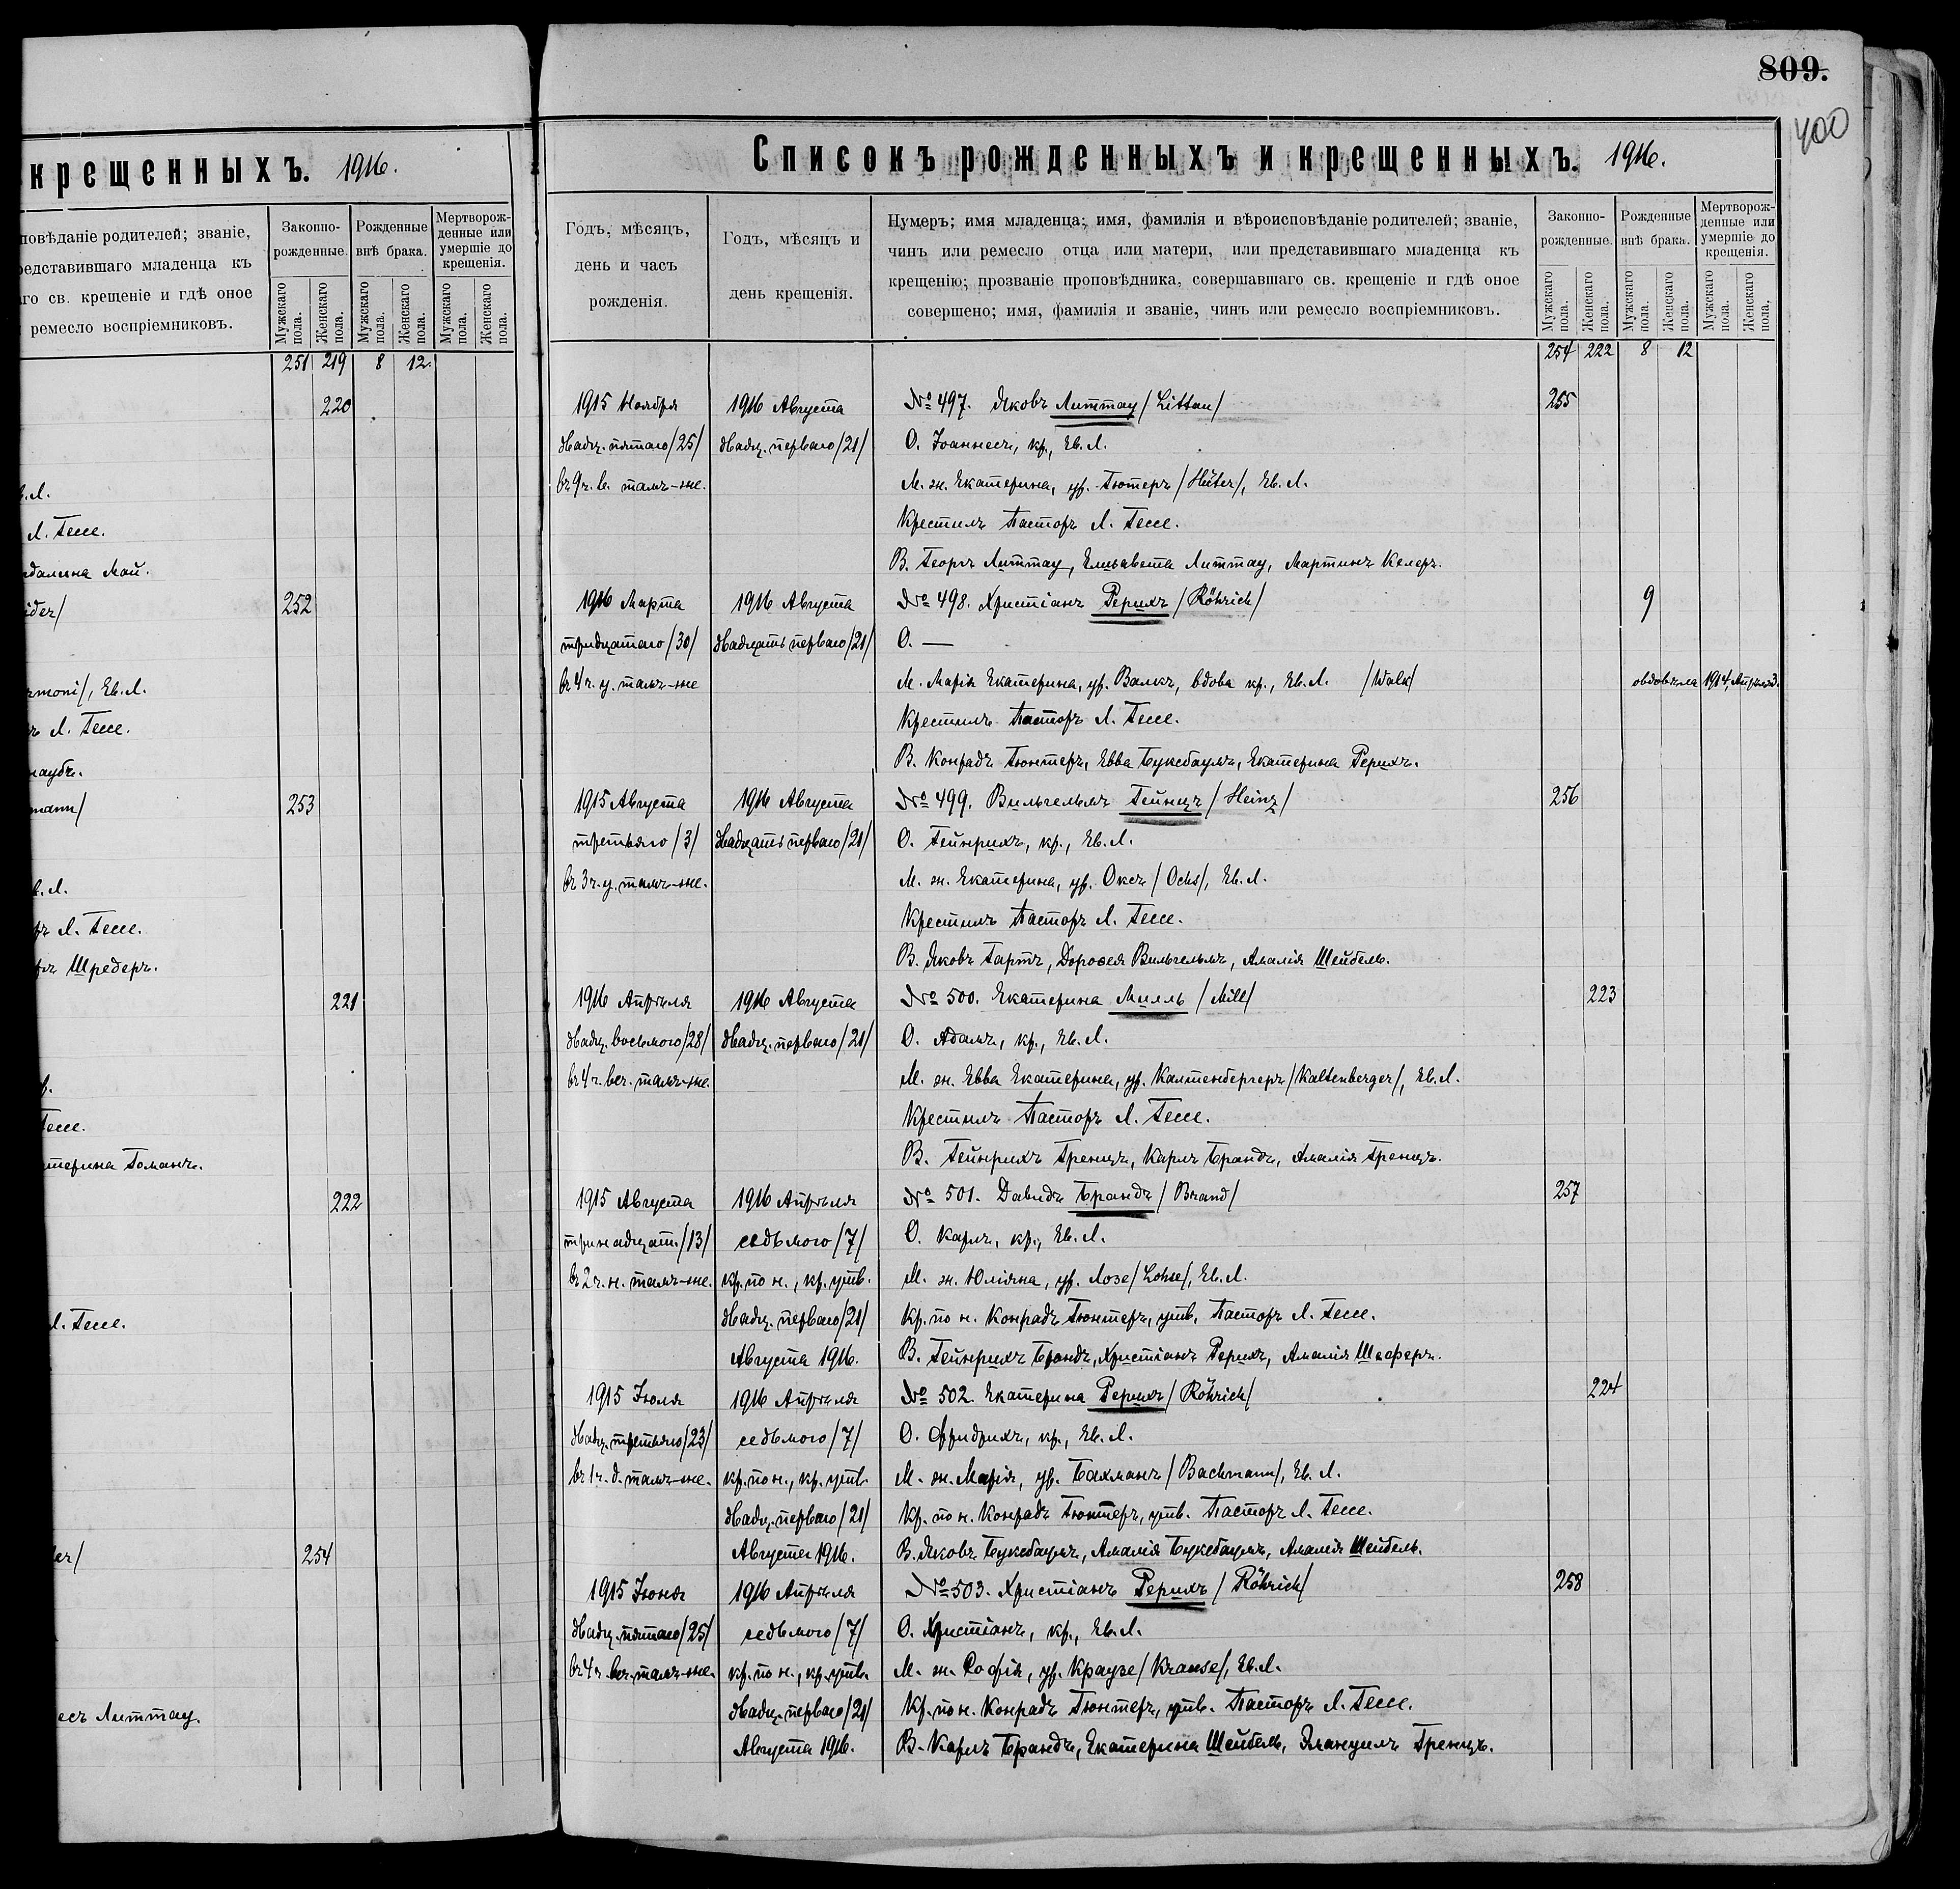 809.
400
крещенныхъ. 1916.
повѣданіе родителей; званіе,
редставившаго младенца къ
го св. крещеніе и гдѣ оное
ремесло воспріемниковъ.
Законно-рожденные.
Рожденные внѣ брака.
Мертворож-денные или умершіе до крещенія.
Мужскаго пола.
Женскаго пола.
Мужскаго пола.
Женскаго пола.
Мужскаго пола.
Женскаго пола.
251 219 8 12.
220
в. Л.
Л. Гессе.
далина Май.
ider/ 252
rmoni/, Ев. Л.
ъ Л. Гессе.
наубъ.
mann/ 253
в. Л.
ръ Л. Гессе.
фъ Шредеръ.
221
Гессе.
терина Гоманъ.
222
Л. Гессе.
er/ 254
есъ Литтау.
Списокъ рожденныхъ и крещенныхъ. 1916.
Годъ, мѣсяцъ,
день и часъ
рожденія.
Годъ, мѣсяцъ и
день крещенія.
Нумеръ; имя младенца; имя, фамилія и вѣроисповѣданіе родителей; званіе,
чинъ или ремесло отца или матери, или представившаго младенца къ
крещенію; прозваніе проповѣдника, совершавшаго св. крещеніе и гдѣ оное
совершено; имя, фамилія и званіе, чинъ или ремесло воспріемниковъ.
Законно-рожденные.
Рожденные внѣ брака.
Мертворож-денные или умершіе до крещенія.
Мужскаго пола.
Женскаго пола.
Мужскаго пола.
Женскаго пола.
Мужскаго пола.
Женскаго пола.
254 222 8 12
1915 Ноября 1916 Августа № 497. Яковъ Литтау /Littau/ 255
двадц. пятаго /25/ двадц. перваго /21/ О. Іоаннесъ, кр., Ев. Л.
въ 9 ч. в. тамъ-же. М. ж. Екатерина, ур. Гютеръ /Hüter/, Ев. Л.
Крестилъ Пасторъ Л. Гессе.
В. Георгъ Литтау, Елисавета Литтау, Мартинъ Келеръ.
1916 Марта 1916 Августа № 498. Христіанъ Рерихъ /Röhrich/ 9
тридцатаго /30/ двадцать перваго /21/ О. —
въ 4 ч. у. тамъ-же М. Марія Екатерина, ур. Валкъ, вдова кр., Ев. Л. /Walk/ овдовѣла 1914, Апрѣля 3.
Крестилъ Пасторъ Л. Гессе.
В. Конрадъ Гюнтеръ, Евва Буксбаумъ, Екатерина Рерихъ.
1915 Августа 1916 Августа № 499. Вильгельмъ Гейнцъ /Heinz/ 256
третьяго /3/ двадцать перваго /21/ О. Гейнрихъ, кр., Ев. Л.
въ 3 ч. у. тамъ-же. М. ж. Екатерина, ур. Оксъ /Ochs/, Ев. Л.
Крестилъ Пасторъ Л. Гессе.
В. Яковъ Гартъ, Доροѳея Вильгельмъ, Амалія Шейбель.
1916 Апрѣля 1916 Августа № 500. Екатерина Милль /Mill/ 223
двадц. восьмого /28/ двадц. перваго /21/ О. Адамъ, кр., Ев. Л.
въ 4 ч. веч. тамъ-же. М. ж. Евва Екатерина, ур. Калтенбергеръ /Kaltenberger/, Ев. Л.
Крестилъ Пасторъ Л. Гессе.
В. Гейнрихъ Гренцъ, Карлъ Брандъ, Амалія Гренцъ.
1915 Августа 1916 Апрѣля № 501. Давидъ Брандъ /Brand/ 257
тринадцат. /13/ седьмого /7/ О. Карлъ, кр., Ев. Л.
въ 2 ч. н. тамъ-же. кр. по н., кр. утв. М. ж. Юліяна, ур. Лозе /Lohse/, Ев. Л.
двадц. перваго /21/ Кр. по н. Конрадъ Гюнтеръ, утв. Пасторъ Л. Гессе.
Августа 1916. В. Гейнрихъ Брандъ, Христіанъ Рерихъ, Амалія Шеферъ.
1915 Іюля 1916 Апрѣля № 502. Екатерина Рерихъ /Röhrich/ 224
двадц. третьяго /23/ седьмого /7/ О. Фридрихъ, кр., Ев. Л.
въ 1 ч. д. тамъ-же. кр. по н., кр. утв. М. ж. Марія, ур. Бахманъ /Bachmann/, Ев. Л.
двадц. перваго /21/ Кр. по н. Конрадъ Гюнтеръ, утв. Пасторъ Л. Гессе.
Августа 1916. В. Яковъ Буксбаумъ, Амалія Буксбаумъ, Амалія Шейбель.
1915 Іюня 1916 Апрѣля № 503. Христіанъ Рерихъ /Röhrich/ 258
двадц. пятаго /25/ седьмого /7/ О. Христіанъ, кр., Ев. Л.
въ 4 ч. веч. тамъ-же. кр. по н., кр. утв. М. ж. Софія, ур. Краузе /Krause/, Ев. Л.
двадц. перваго /21/ Кр. по н. Конрадъ Гюнтеръ, утв. Пасторъ Л. Гессе.
Августа 1916. В. Карлъ Брандъ, Екатерина Шейбель, Эмануилъ Гренцъ.